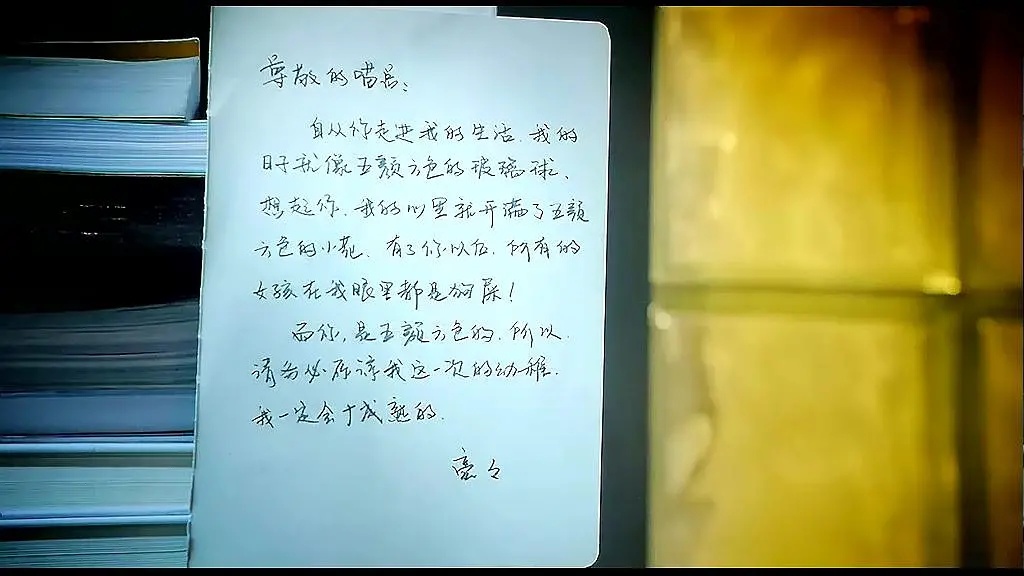 尊敬的喵呂、
自从你走进我的生活.我的
日子就像五颜六色的玻璃球、
想起你.我的心里就开满了五颜
六色的小花、有了你以后.所有的
女孩在我眼里都是狗屎！
而你,是五颜六色的.所以.
请务必原谅我这一次的幼稚.
我一定会成熟的.
亮々